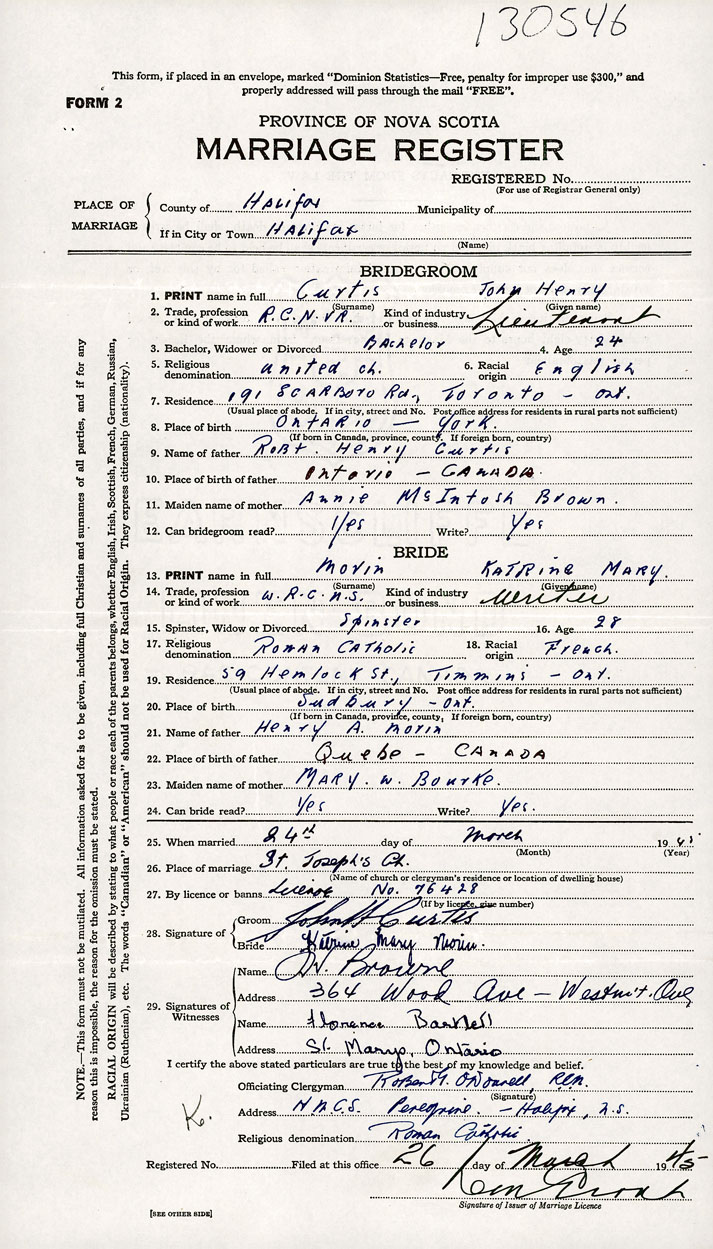 130546
This form, if placed in an envelope, marked "Dominion Statistics—Free, penalty for improper use $300," and
properly addressed will pass through the mail "FREE".
FORM 2
PROVINCE OF NOVA SCOTIA
MARRIAGE REGISTER
REGISTERED No.
(For use of Registrar General only)
PLACE OF MARRIAGE
County of Halifax Municipality of
If in City or Town Halifax
(Name)
BRIDEGROOM
1. PRINT name in full Curtis John Henry
(Surname) (Given name)
2. Trade, profession or kind of work R.C.N.V.R. Kind of industry or business Lieutenant
3. Bachelor, Widower or Divorced Bachelor 4. Age 24
5. Religious denomination United Ch. 6. Racial origin English
7. Residence 191 Scarboro Rd., Toronto - Ont.
(Usual place of abode. If in city, street and No. Post office address for residents in rural parts not sufficient)
8. Place of birth Ontario — York.
(If born in Canada, province, county. If foreign born, country)
9. Name of father Robt. Henry Curtis
10. Place of birth of father Ontario - CANADA.
11. Maiden name of mother Annie McIntosh Brown.
12. Can bridegroom read? Yes Write? Yes
BRIDE
13. PRINT name in full Morin Katrine Mary.
(Surname) (Given name)
14. Trade, profession or kind of work W.R.C.N.S. Kind of industry or business Writer
15. Spinster, Widow or Divorced Spinster 16. Age 28
17. Religious denomination Roman Catholic 18. Racial origin French.
19. Residence 59 Hemlock St., Timmins - Ont.
(Usual place of abode. If in city, street and No. Post office address for residents in rural parts not sufficient)
20. Place of birth Sudbury - Ont.
(If born in Canada, province, county, If foreign born, country)
21. Name of father Henry A. Morin
22. Place of birth of father Quebe - CANADA
23. Maiden name of mother Mary. W. Bourke.
24. Can bride read? Yes Write? Yes.
25. When married 24th day of March 19
(Month) (Year)
26. Place of marriage St. Joseph's Ch.
(Name of church or clergyman's residence or location of dwelling house)
27. By licence or banns License No. 76428
(If by licence, give number)
28. Signature of
Groom John H Curtis
Bride Katrine Mary Morin.
29. Signatures of Witnesses
Name Browne
Address 364 Wood Ave - Westm't. Que
Name Florence Bartlett
Address St. Marys, Ontario
I certify the above stated particulars are true to the best of my knowledge and belief.
Officiating Clergyman Robert G. O'Donnell,
(Signature)
Address H.M.C.S. Peregrine. - Halifax, N.S.
K.
Religious denomination Roman Catholic
Registered No. Filed at this office 26 day of March 1945
Signature of Issuer of Marriage Licence
[SEE OTHER SIDE]
NOTE.—This form must not be mutilated. All information asked for is to be given, including full Christian and surnames of all parties, and if for any
reason this is impossible, the reason for the omission must be stated.
RACIAL ORIGIN will be described by stating to what people or race each of the parents belongs, whether English, Irish, Scottish, French, German, Russian,
Ukrainian (Ruthenian), etc. The words "Canadian" or "American" should not be used for Racial Origin. They express citizenship (nationality).